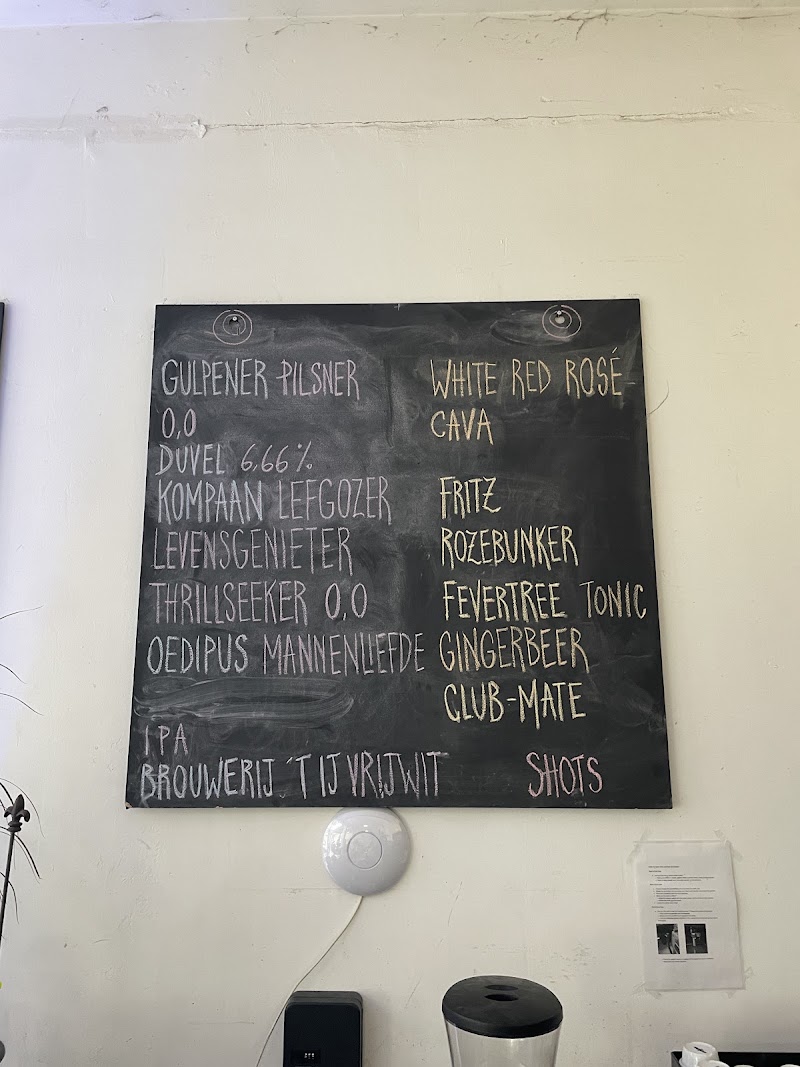 GULPENER PILSNER
0,0
DUVEL 6,66%
KOMPAAN LEFGOZER
LEVENSGENIETER
THRILLSEEKER 0,0
OEDIPUS MANNENLIEFDE
IPA
BROUWERIJ 'T IJ VRIJWIT
WHITE RED ROSÉ
CAVA
FRITZ
ROZEBUNKER
FEVERTREE TONIC
GINGERBEER
CLUB-MATE
SHOTS